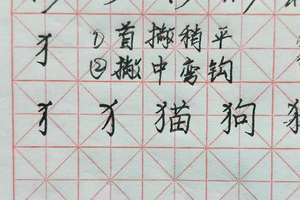 犭 ①首撇稍平
②撇中弯钩
犭 犭 猫 狗